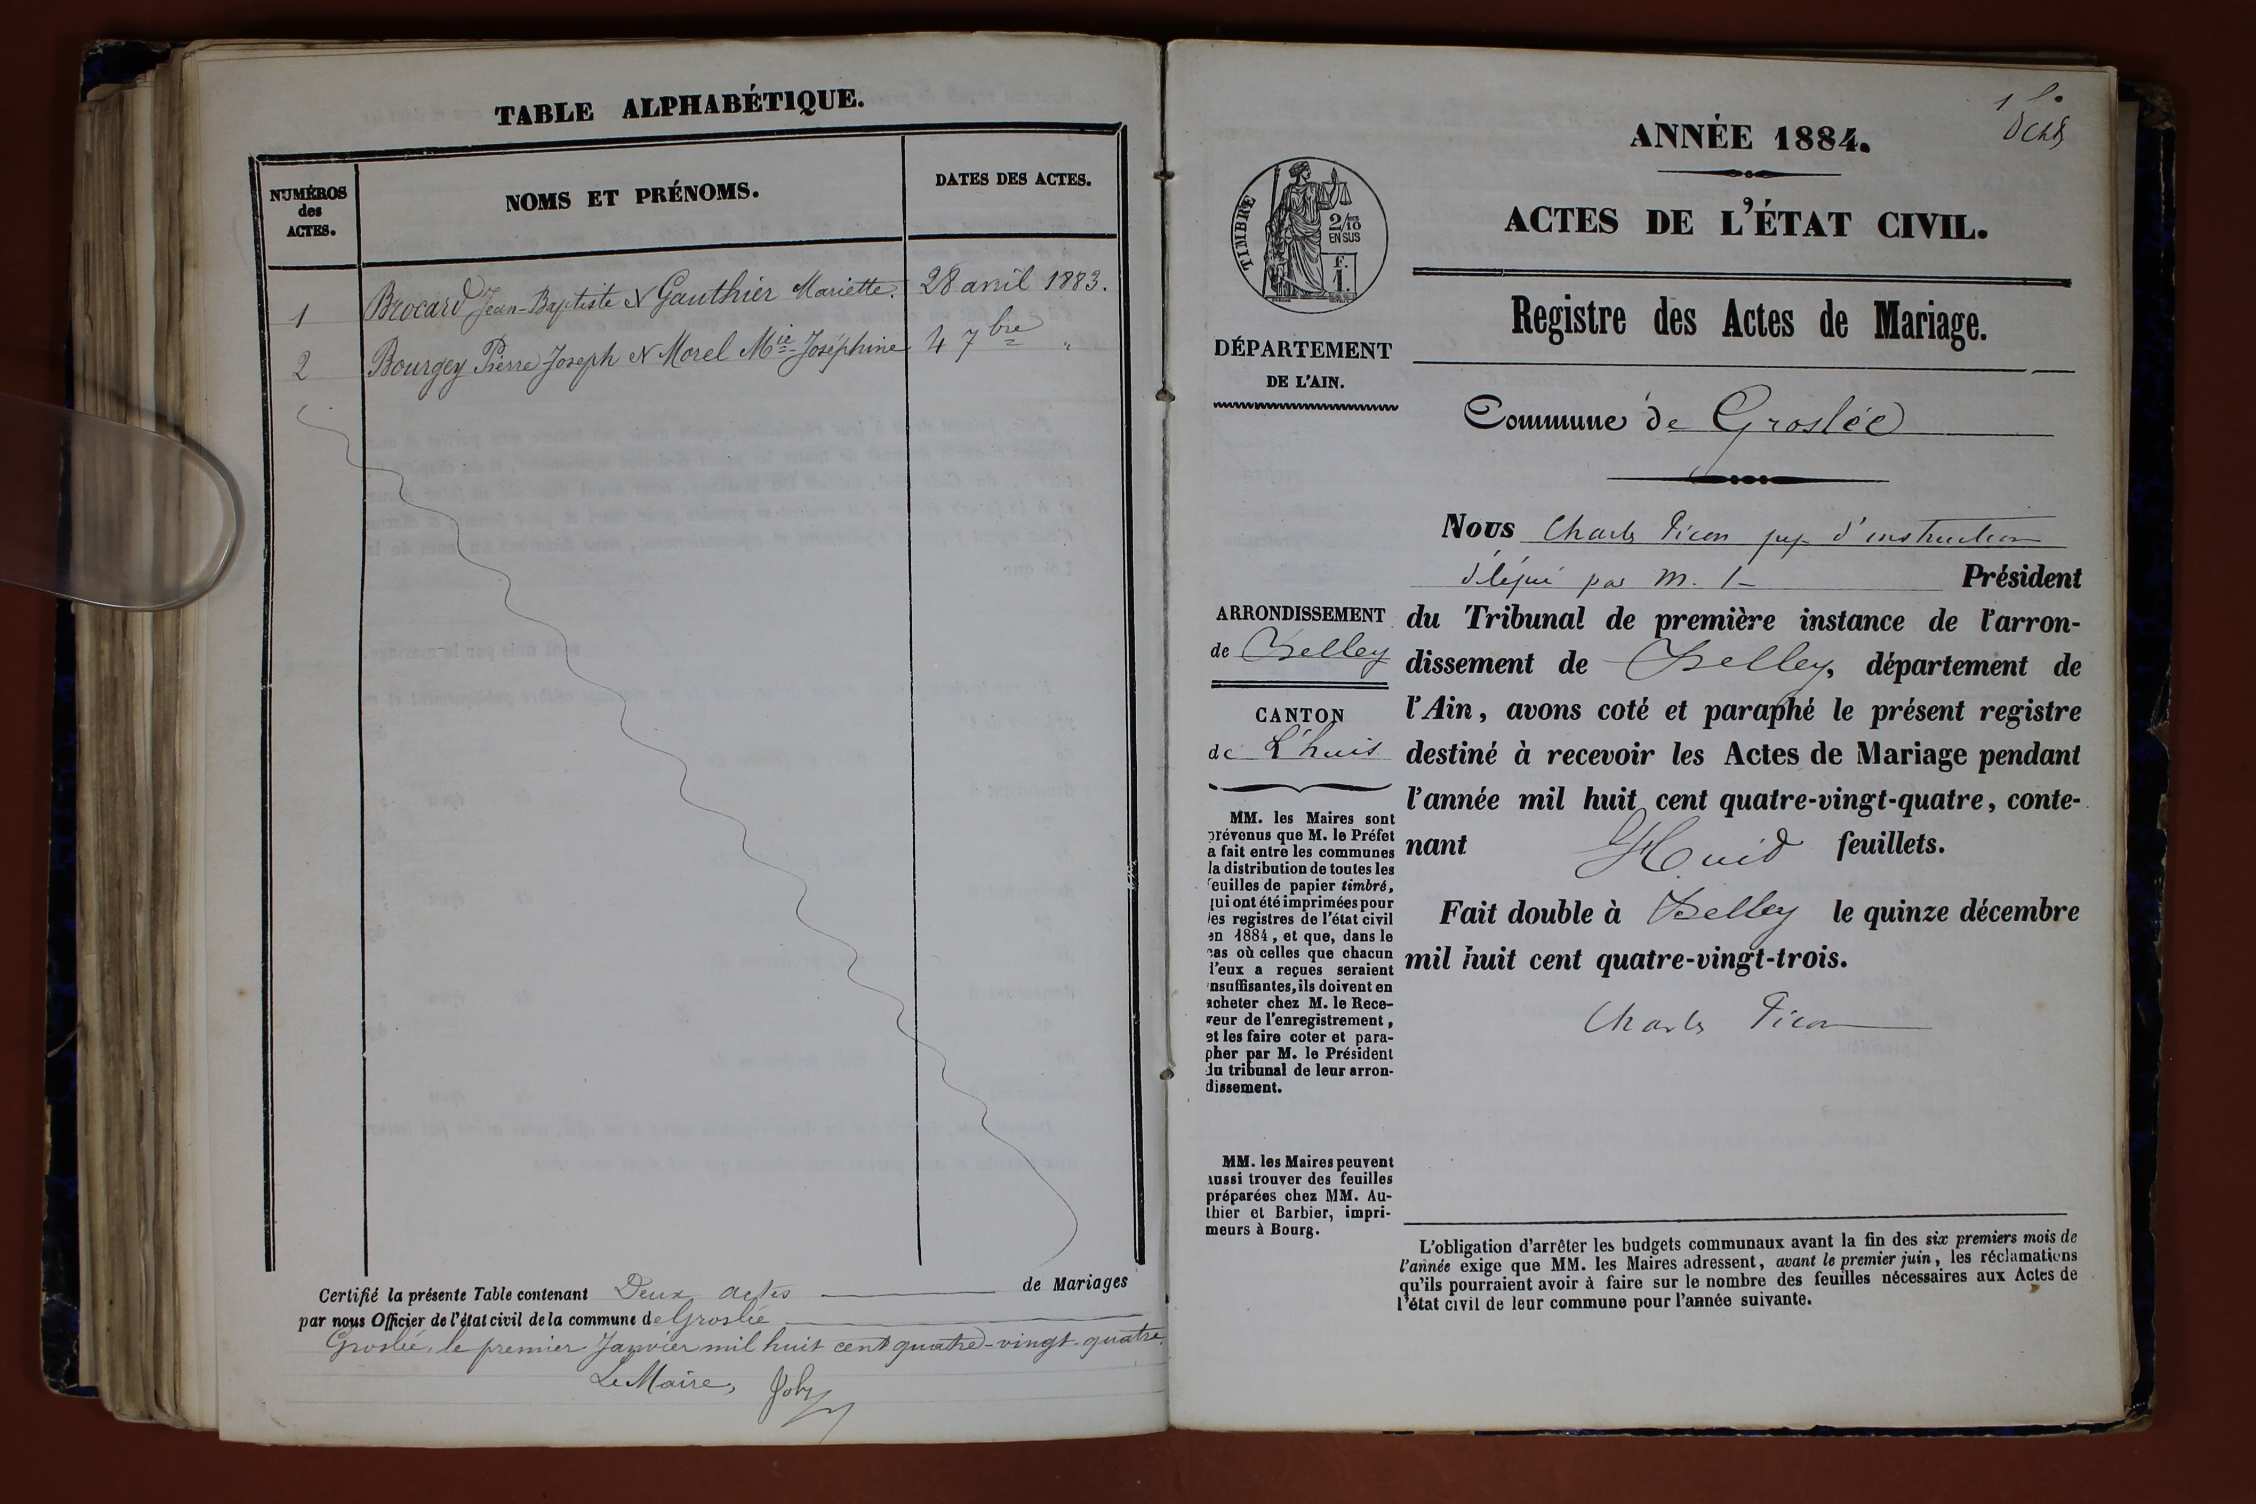 TABLE ALPHABÉTIQUE.
NUMÉROS
des
ACTES.
NOMS ET PRÉNOMS.
DATES DES ACTES.
1 Brocard Jean-Baptiste & Gauthier Mariette. 28 avril 1883.
2 Bourgey Pierre Joseph & Morel Mie Joséphine 4 7bre "
Certifié la présente Table contenant Deux actes de Mariages
par nous Officier de l'état civil de la commune de Groslée
Groslée, le premier Janvier mil huit cent quatre-vingt-quatre.
Le Maire,
1 f.
ANNÉE 1884.
ACTES DE L'ÉTAT CIVIL.
Registre des Actes de Mariage.
TIMBRE
2/10
EN SUS
f.
1.
DÉPARTEMENT
DE L'AIN.
Commune de Groslée
Nous Charles Picon juge d'instruction
délégué par M. le Président
ARRONDISSEMENT
de Belley
du Tribunal de première instance de l'arron-
dissement de Belley, département de
l'Ain, avons coté et paraphé le présent registre
destiné à recevoir les Actes de Mariage pendant
l'année mil huit cent quatre-vingt-quatre, conte-
nant Huit feuillets.
Fait double à Belley le quinze décembre
mil huit cent quatre-vingt-trois.
Charles Picon
CANTON
de L'huis
MM. les Maires sont
prévenus que M. le Préfet
a fait entre les communes
la distribution de toutes les
feuilles de papier timbré,
qui ont été imprimées pour
les registres de l'état civil
en 1884, et que, dans le
cas où celles que chacun
d'eux a reçues seraient
insuffisantes, ils doivent en
acheter chez M. le Rece-
veur de l'enregistrement,
et les faire coter et para-
pher par M. le Président
du tribunal de leur arron-
dissement.
MM. les Maires peuvent
aussi trouver des feuilles
préparées chez MM. Au-
thier et Barbier, impri-
meurs à Bourg.
L'obligation d'arrêter les budgets communaux avant la fin des six premiers mois de
l'année exige que MM. les Maires adressent, avant le premier juin, les réclamations
qu'ils pourraient avoir à faire sur le nombre des feuilles nécessaires aux Actes de
l'état civil de leur commune pour l'année suivante.